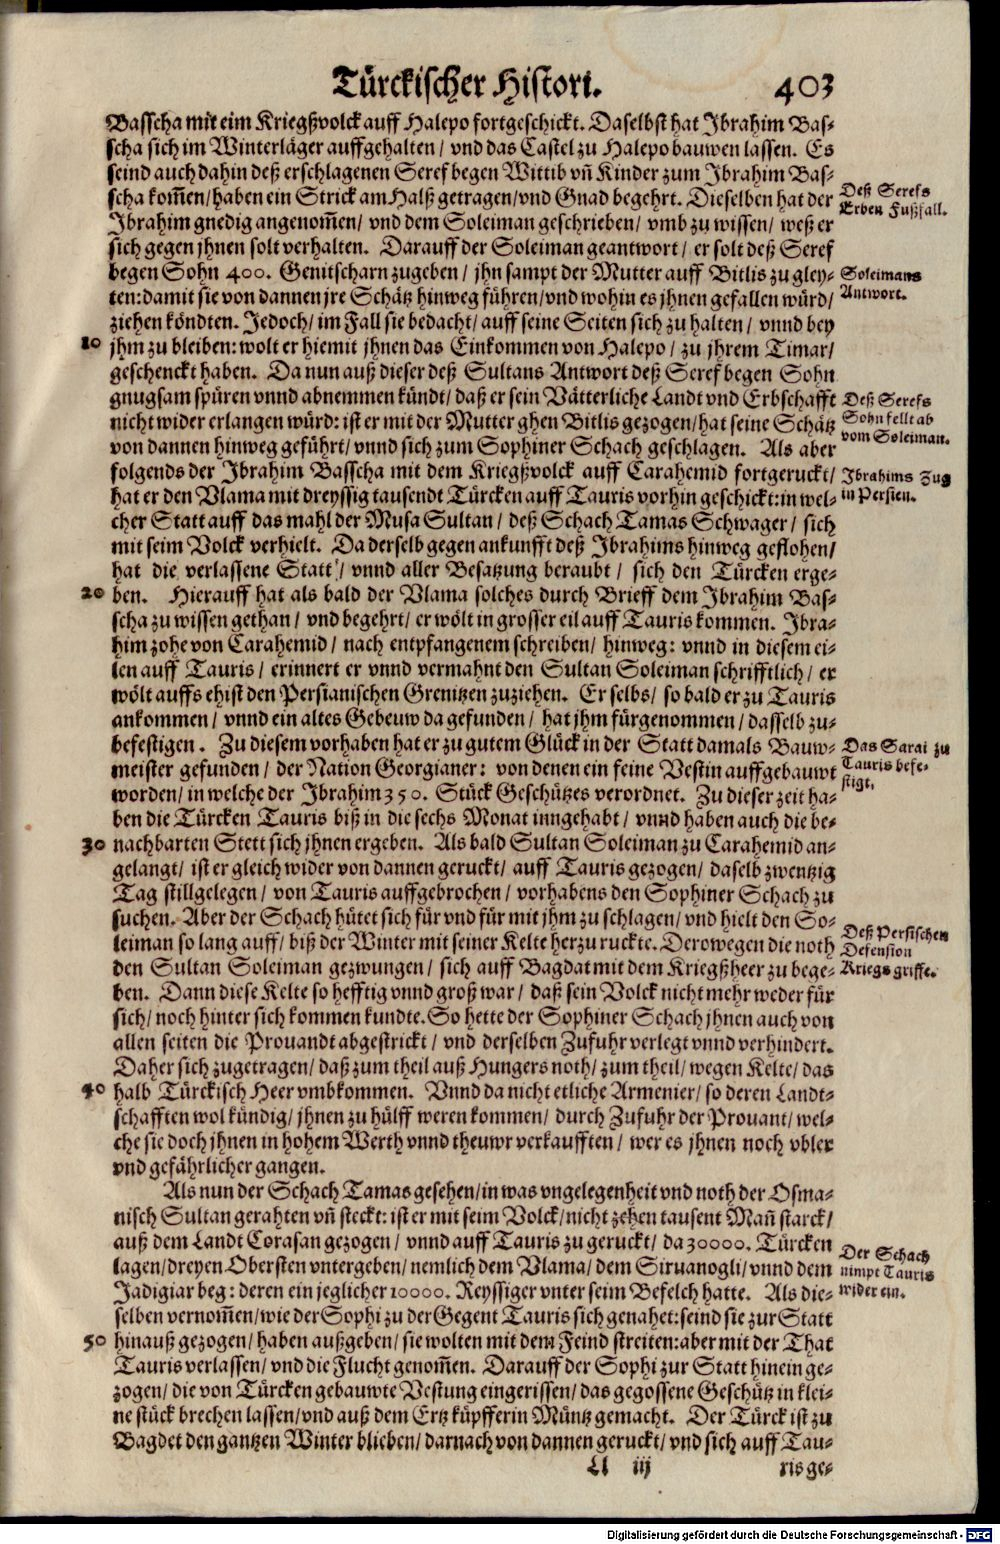 Türckischer Histori. 403
Basscha mit eim Kriegßvolck auff Halepo fortgeschickt. Daselbst hat Jbrahim Bas-
scha sich im Winterläger auffgehalten / vnd das Castel zu Halepo bauwen lassen. Es
seind auch dahin deß erschlagenen Seref begen Wittib vñ Kinder zum Jbrahim Bas-
scha kom̃en/haben ein Strick am Halß getragen/vnd Gnad begehrt. Dieselben hat der
Deß Serefs
Erben Fußfall.
Jbrahim gnedig angenom̃en/ vnd dem Soleiman geschrieben / vmb zu wissen / weß er
sich gegen jhnen solt verhalten. Darauff der Soleiman geantwort / er solt deß Seref
begen Sohn 400. Genitscharn zugeben / jhn sampt der Mutter auff Bitlis zu gley-
Soleimans
Antwort.
ten: damit sie von dannen jre Schätz hinweg führen/vnd wohin es jhnen gefallen würd/
ziehen köndten. Jedoch/ im Fall sie bedacht/ auff seine Seiten sich zu halten / vnnd bey
10 jhm zu bleiben: wolt er hiemit jhnen das Einkommen von Halepo / zu jhrem Timar/
geschenckt haben. Da nun auß dieser deß Sultans Antwort deß Seref begen Sohn
gnugsam spüren vnnd abnemmen kündt/ daß er sein Vätterliche Landt vnd Erbschafft
nicht wider erlangen würd: ist er mit der Mutter ghen Bitlis gezogen/hat seine Schätz
von dannen hinweg geführt/ vnnd sich zum Sophiner Schach geschlagen. Als aber
Deß Serefs
Sohn fellt ab
vom Soleiman.
folgends der Jbrahim Basscha mit dem Kriegßvolck auff Carahemid fortgeruckt/
hat er den Vlama mit dreyssig tausendt Türcken auff Tauris vorhin geschickt: in wel-
Jbrahims Zug
in Persien.
cher Statt auff das mahl der Musa Sultan / deß Schach Tamas Schwager / sich
mit seim Volck verhielt. Da derselb gegen ankunfft deß Jbrahims hinweg geflohen/
hat die verlassene Statt / vnnd aller Besatzung beraubt / sich den Türcken erge-
20 ben. Hierauff hat als bald der Vlama solches durch Brieff dem Jbrahim Bas-
scha zu wissen gethan / vnd begehrt/ er wölt in grosser eil auff Tauris kommen. Jbra-
him zohe von Carahemid / nach entpfangenem schreiben / hinweg: vnnd in diesem ei-
len auff Tauris / erinnert er vnnd vermahnt den Sultan Soleiman schrifftlich / er
wölt auffs ehist den Persianischen Grenitzen zuziehen. Er selbs/ so bald er zu Tauris
ankommen / vnnd ein altes Gebeuw da gefunden / hat jhm fürgenommen / dasselb zu-
befestigen. Zu diesem vorhaben hat er zu gutem Glück in der Statt damals Bauw-
meister gefunden / der Nation Georgianer: von denen ein feine Vestin auffgebauwt
Das Sarai zu
Tauris befe-
stigt.
worden/ in welche der Jbrahim 350. Stück Geschützes verordnet. Zu dieser zeit ha-
ben die Türcken Tauris biß in die sechs Monat inngehabt/ vnnd haben auch die be-
30 nachbarten Stett sich jhnen ergeben. Als bald Sultan Soleiman zu Carahemid an-
gelangt/ ist er gleich wider von dannen geruckt/ auff Tauris gezogen/ daselb zwentzig
Tag stillgelegen / von Tauris auffgebrochen / vorhabens den Sophiner Schach zu
suchen. Aber der Schach hütet sich für vnd für mit jhm zu schlagen/ vnd hielt den So-
leiman so lang auff/ biß der Winter mit seiner Kelte herzu ruckte. Derowegen die noth
den Sultan Soleiman gezwungen / sich auff Bagdat mit dem Kriegßheer zu bege-
Deß Persischen
Defension
Kriegs griffe.
ben. Dann diese Kelte so hefftig vnnd groß war / daß sein Volck nicht mehr weder für
sich/ noch hinter sich kommen kundte. So hette der Sophiner Schach jhnen auch von
allen seiten die Prouandt abgestrickt / vnd derselben Zufuhr verlegt vnnd verhindert.
Daher sich zugetragen/ daß zum theil auß Hungers noth/ zum theil/ wegen Kelte/ das
40 halb Türckisch Heer vmbkommen. Vnnd da nicht etliche Armenier/ so deren Landt-
schafften wol kündig/ jhnen zu hülff weren kommen / durch Zufuhr der Prouant/ wel-
che sie doch jhnen in hohem Werth vnnd theuwr verkaufften / wer es jhnen noch vbler
vnd gefährlicher gangen.
Als nun der Schach Tamas gesehen/in was vngelegenheit vnd noth der Osma-
nisch Sultan gerahten vñ steckt: ist er mit seim Volck/nicht zehen tausent Mañ starck/
auß dem Landt Corasan gezogen / vnnd auff Tauris zu geruckt/ da 30000. Türcken
lagen/dreyen Obersten vntergeben/ nemlich dem Vlama/ dem Siruanogli/ vnnd dem
Der Schach
nimpt Tauris
wider ein.
Jadigiar beg: deren ein jeglicher 10000. Reyssiger vnter seim Befelch hatte. Als die-
selben vernom̃en/wie der Sophi zu der Gegent Tauris sich genahet: seind sie zur Statt
50 hinauß gezogen/ haben außgeben/ sie wolten mit dem Feind streiten: aber mit der That
Tauris verlassen/ vnd die Flucht genom̃en. Darauff der Sophi zur Statt hinein ge-
zogen/ die von Türcken gebauwte Vestung eingerissen/ das gegossene Geschütz in klei-
ne stück brechen lassen/vnd auß dem Ertz küpfferin Müntz gemacht. Der Türck ist zu
Bagdet den gantzen Winter blieben/ darnach von dannen geruckt/ vnd sich auff Tau-
Ll iij ris ge-
Digitalisierung gefördert durch die Deutsche Forschungsgemeinschaft - DFG